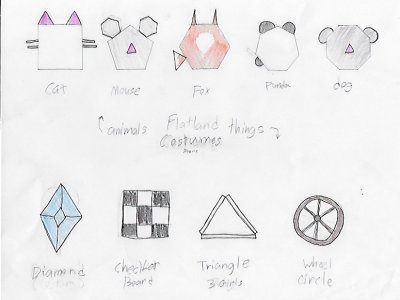 Cat
Mouse
Fox
Panda
dog
animals
Flatland
things
Costumes
Diamond
Board
Triangle
Wheel
Circle